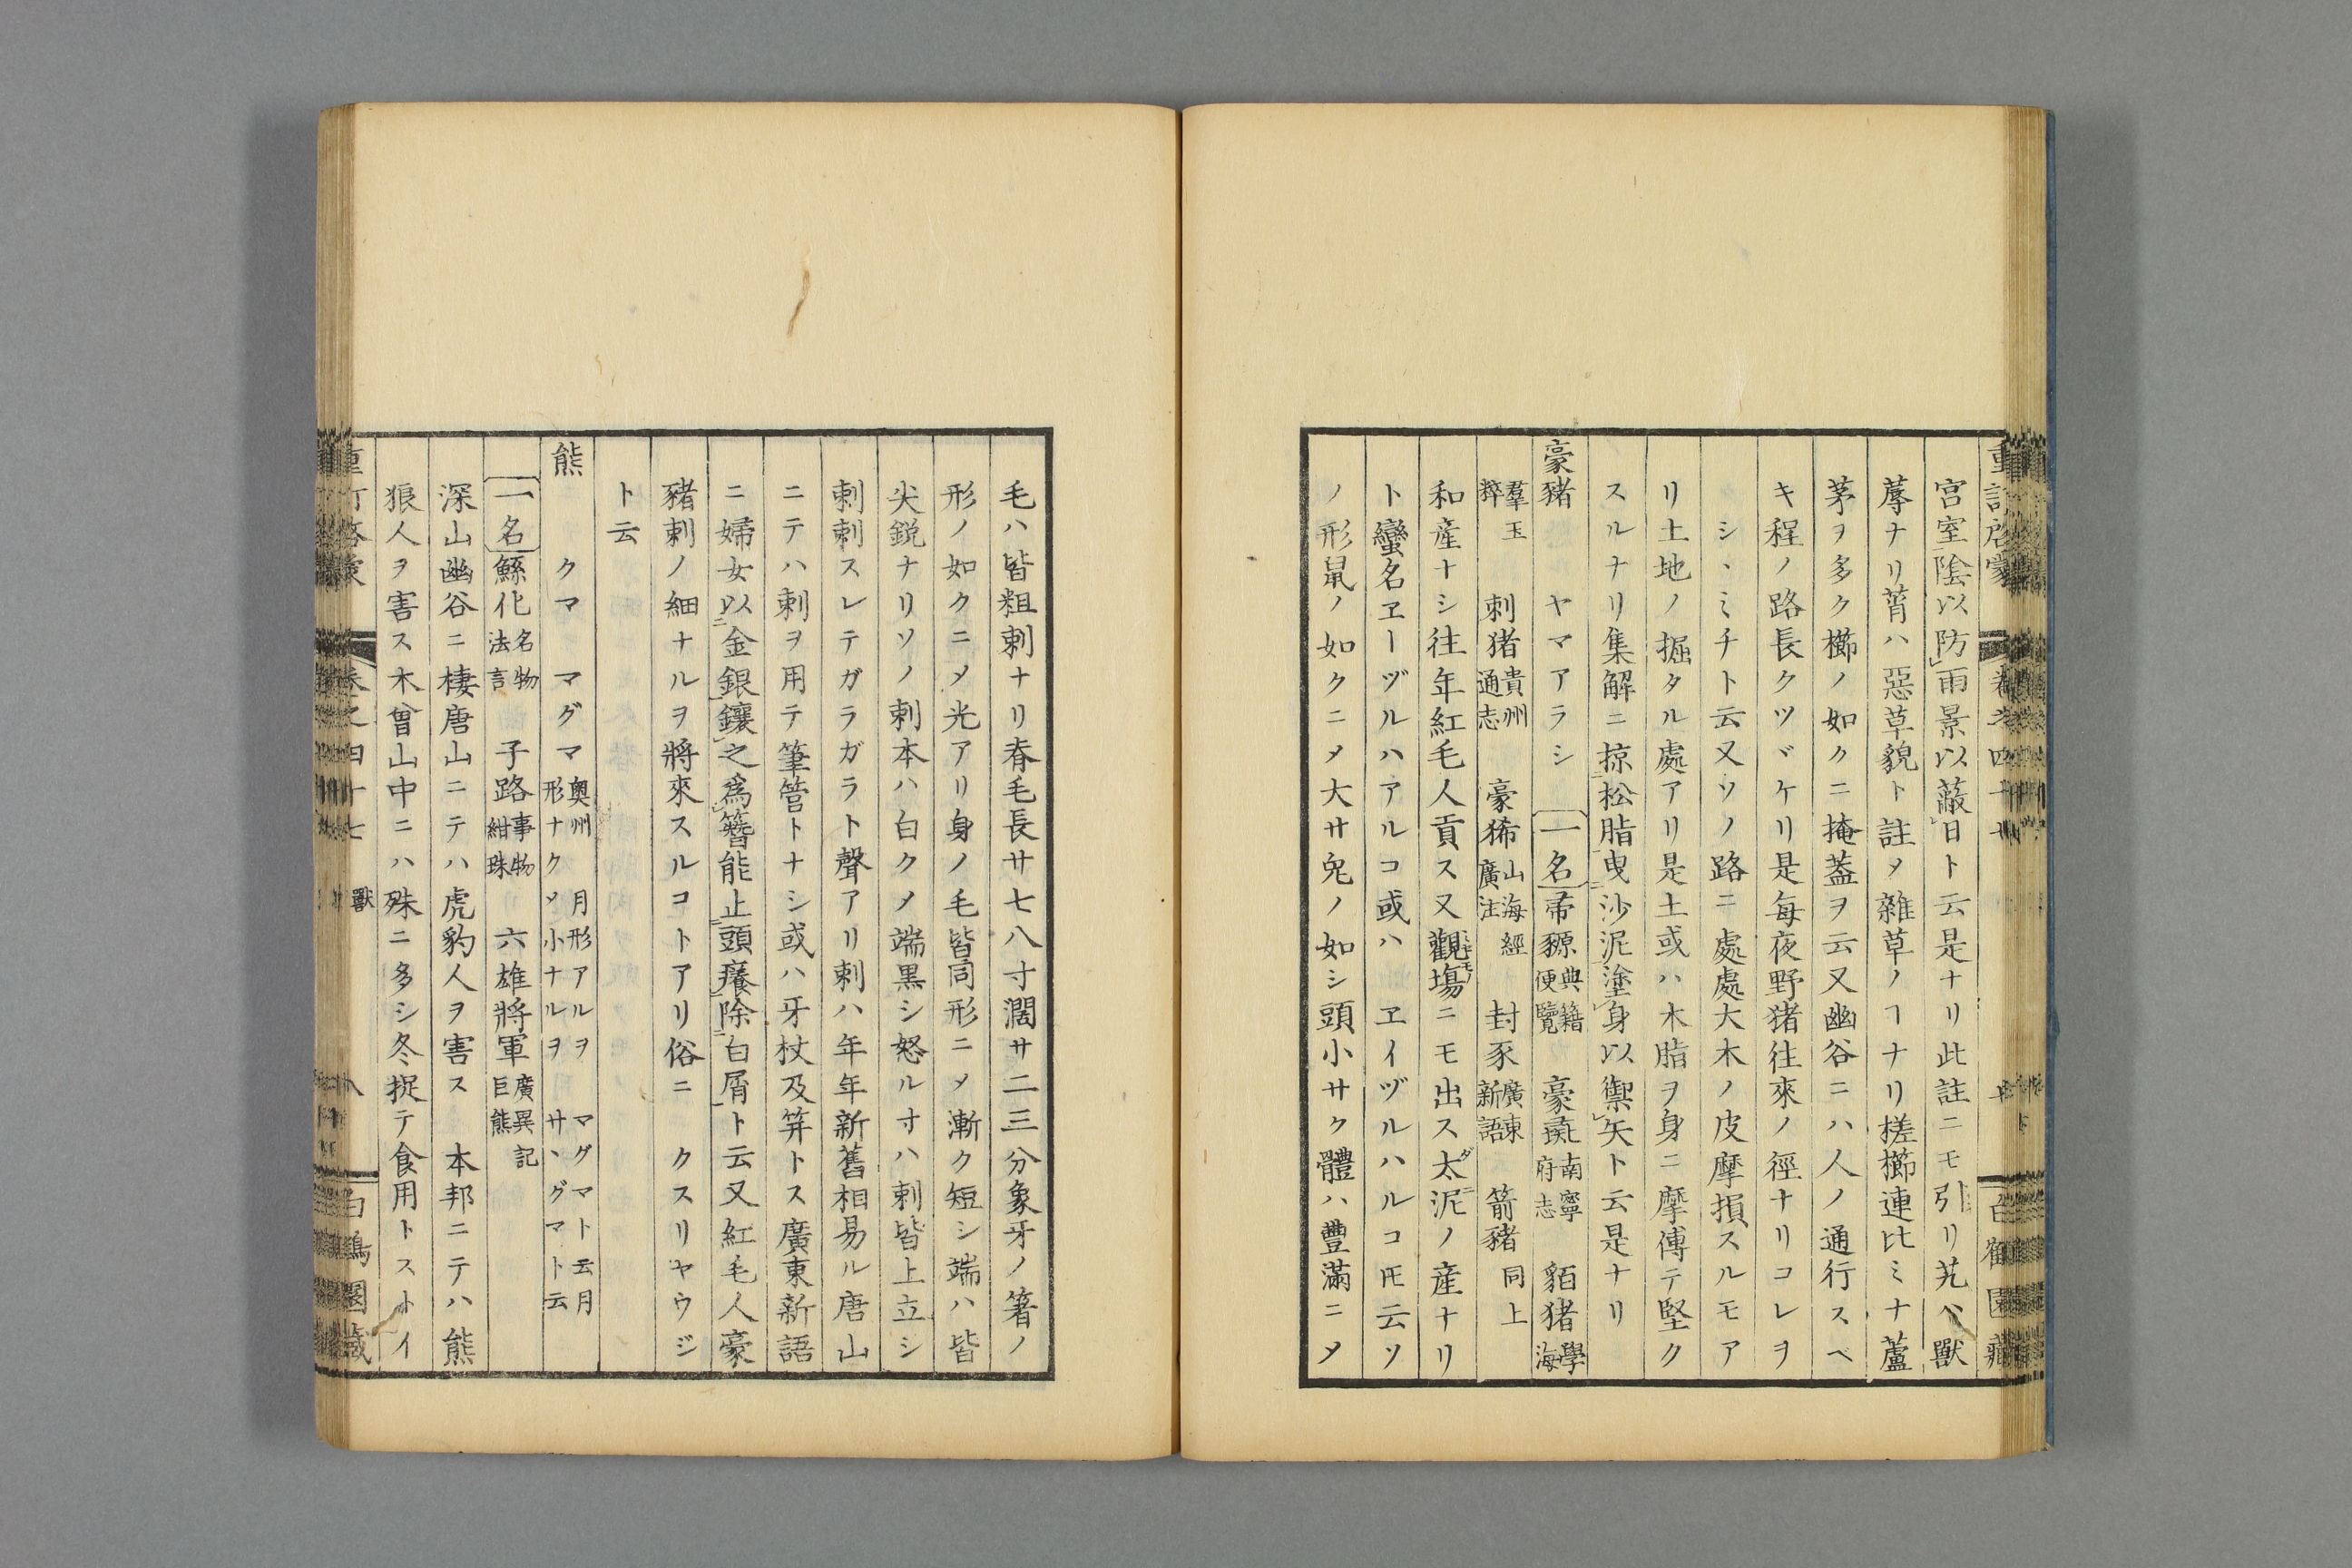 宮室陰以防雨景以蔽日ト云是ナリ此註ニモ引リ艽ベ獸
蓐ナリ莦ハ惡草貌ト註メ雜草ノヿナリ槎櫛連比ミナ蘆
茅ヲ多ク櫛ノ如クニ掩蓋ヲ云又幽谷ニハ人ノ通行スベ
キ程ノ路長クツヾケリ是每夜野猪往來ノ徑ナリコレヲ
シヽミチト云又ソノ路ニ處處大木ノ皮摩損スルモア
リ土地ノ掘タル處アリ是土或ハ木脂ヲ身ニ摩傅テ堅ク
スルナリ集解ニ掠松脂曳沙泥塗身以禦矢ト云是ナリ
豪豬 ヤマアラシ 一名 帚豲 典籍便覽 豪彘 南寧府志 貊猪 學海
羣玉 刺猪 貴州通志 豪狶 山海經廣注 封豕 廣東新語 箭豬 同上
和產ナシ往年紅毛人貢ス又觀塲ニモ出ス太泥ノ產ナリ
ト蠻名ヱーヅルハアルコ或ハ ヱイヅルハルコ𪜈云ソ
ノ形鼠ノ如クニメ大サ兔ノ如シ頭小サク體ハ豐滿ニメ
毛ハ皆粗刺ナリ脊毛長サ七八寸濶サ二三分象牙ノ箸ノ
形ノ如クニメ光アリ身ノ毛皆同形ニメ漸ク短シ端ハ皆
尖鋭ナリソノ刺本ハ白クメ端黒シ怒ル寸ハ刺皆上立シ
刺刺スレテガラガラト聲アリ刺ハ年年新舊相易ル唐山
ニテハ刺ヲ用テ筆管トナシ或ハ牙杖及笄トス廣東新語
ニ婦女以金銀鑲之爲簪能止頭癢除白屑ト云又紅毛人豪
豬刺ノ細ナルヲ將來スルコトアリ俗ニ クスリヤウジ
ト云
熊 クマ マグマ 奧州 月形アルヲ マグマト云月形ナクメ小ナルヲ サヽグマト云
一名 鯀化 名物法言 子路 事物紺珠 六雄將軍 廣異記巨熊
深山幽谷ニ棲唐山ニテハ虎豹人ヲ害ス 本邦ニテハ熊
狼人ヲ害ス木曾山中ニハ殊ニ多シ冬捉テ食用トスト イ